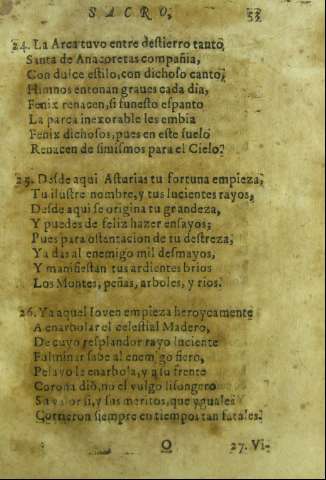 SACRO, 53
24. La Arca tuvo entre destierro tanto,
Santa de Anacoretas compañia,
Con dulce estilo, con dichoso canto,
Himnos entonan graues cada dia,
Fenix renacen, si funesto espanto
La parca inexorable les embia
Fenix dichosos, pues en este suelo
Renacen de si mismos para el Cielo.
25. Desde aqui Asturias tu fortuna empieza,
Tu ilustre nombre, y tus lucientes rayos,
Desde aqui se origina tu grandeza,
Y puedes de feliz hazer ensayos;
Pues para ostantacion de tu destreza,
Ya das al enemigo mil desmayos,
Y manifiestan tus ardientes brios
Los Montes, peñas, arboles, y rios.
26. Ya aquel Iouen empieza heroycamente
A enarbolar el celestial Madero,
De cuyo resplandor rayo luciente
Fulminar sabe al enemigo fiero,
Pelayo le enarbola, y a su frente
Corona diò, no el vulgo lisongero
Su valor si, y sus meritos, que yguales
Corrieron siempre en tiempos tan fatales.
O 27. Vi-